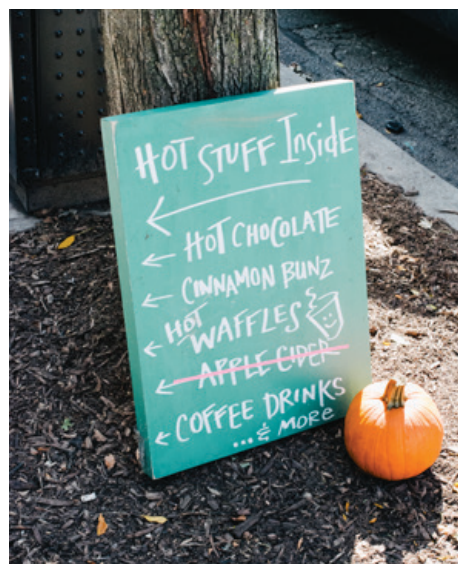 HOT STUFF Inside
HOT CHOCOLATE
CINNAMON BUNZ
HOT
WAFFLES
APPLE CIDER
COFFEE DRINKS
... & MORE